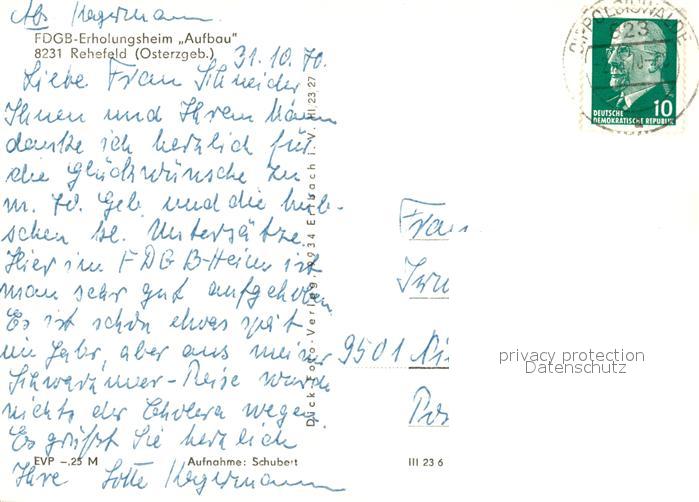 Abs. Hegermann.
FDGB-Erholungsheim „Aufbau"
8231 Rehefeld (Osterzgeb.)
31.10.70.
Liebe Frau Schneider
Ihnen und Ihrem Mann
danke ich herzlich für
die Glückwünsche zu
m. 70. Geb. und die hüb-
schen kl. Untersätze.
Hier im FDGB-Heim ist
man sehr gut aufgehoben.
Es ist schon etwas spät
im Jahr, aber aus meiner
Schwarzmeer-Reise wurde
nichts der Cholera wegen.
Es grüßt Sie herzlich
Ihre Lotte Hegermann
EVP –,25 M
Aufnahme: Schubert
III 23 6
Dück Foto-Verlag, 9934 Erlbach i. V. III 23 27
DIPPOLDISWALDE
823
10
DEUTSCHE
DEMOKRATISCHE REPUBLIK
Frau
9501
privacy protection
Datenschutz